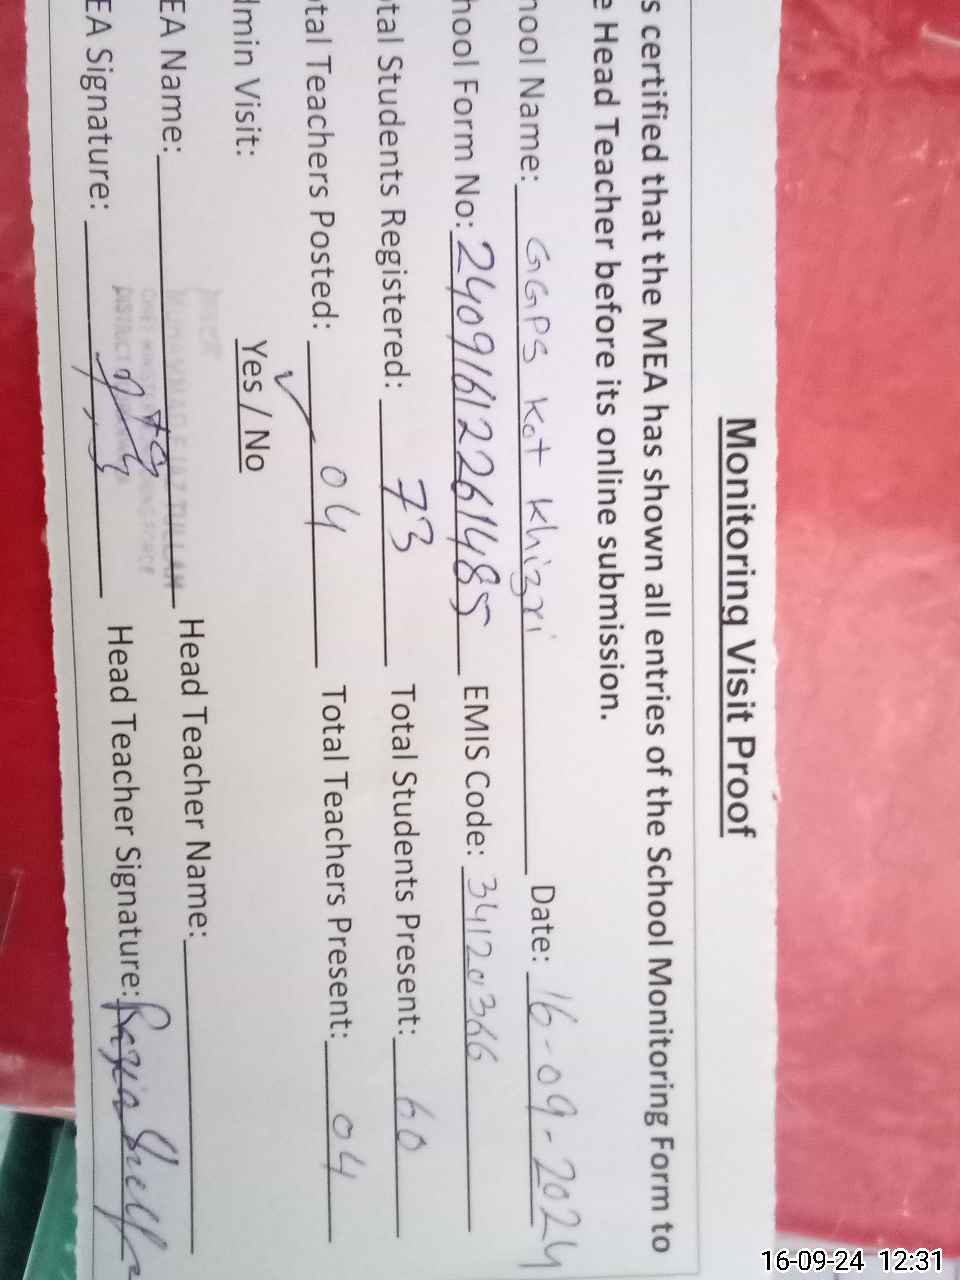 Monitoring Visit Proof
s certified that the MEA has shown all entries of the School Monitoring Form to
e Head Teacher before its online submission.
hool Name: GGPS Kot Khizri Date: 16-09-2024
hool Form No: 24091612261485 EMIS Code: 34120366
tal Students Registered: 73 Total Students Present: 60
tal Teachers Posted: 04 Total Teachers Present: 04
dmin Visit: Yes / No
EA Name: Head Teacher Name:
EA Signature: Head Teacher Signature:
16-09-24 12:31